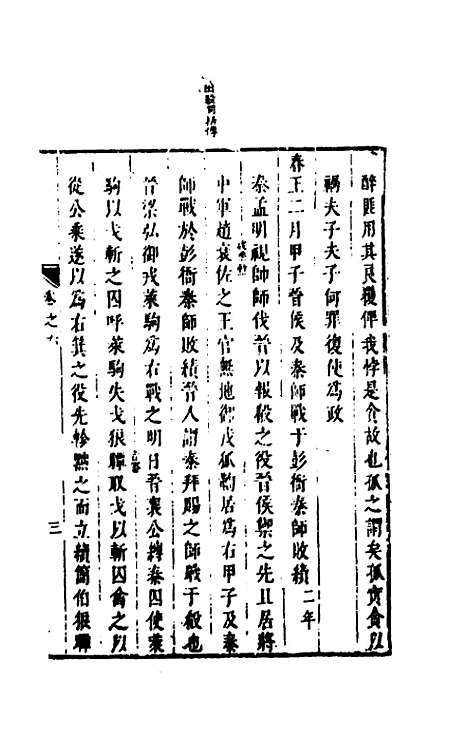 醉匪用其良覆俾我悖是貪故也孤之謂矣孤實貪以
禍夫子夫子何罪復使爲政
春王二月甲子晉侯及秦師戰于彭衙秦師敗績二年
秦孟明視帥師伐晉以報殽之役晉侯禦之先且居將
中軍趙衰佐之王官無地御戎狐鞫居爲右甲子及秦
師戰於彭衙秦師敗績晉人謂秦拜賜之師戰于殽也
晉梁弘御戎萊駒爲右戰之明日晉襄公縛秦囚使萊
駒以戈斬之囚呼萊駒失戈狼瞫取戈以斬囚禽之以
從公乘遂以爲右箕之役先軫黜之而立續簡伯狼瞫
卷之
三